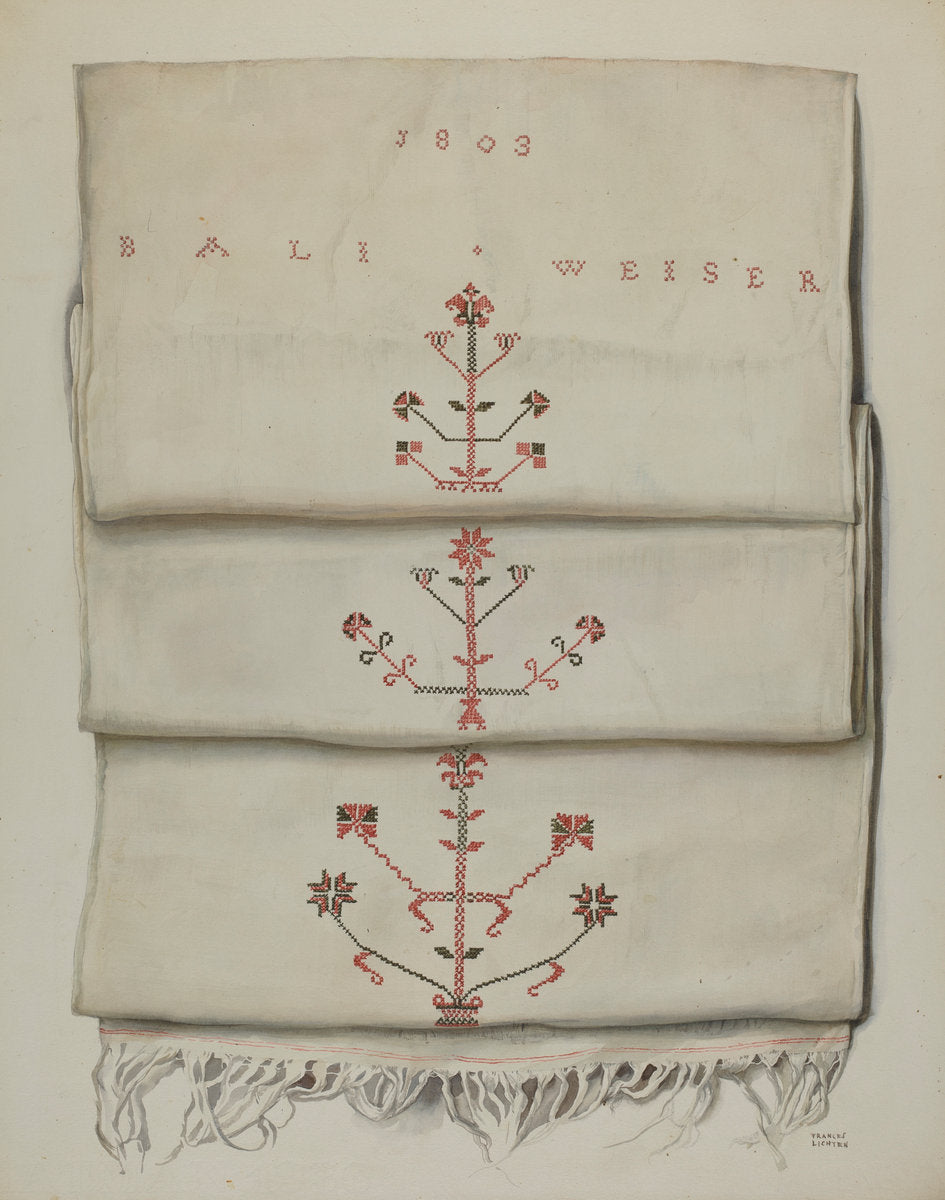 1803
BALI · WEISER
FRANCES
LICHTEN